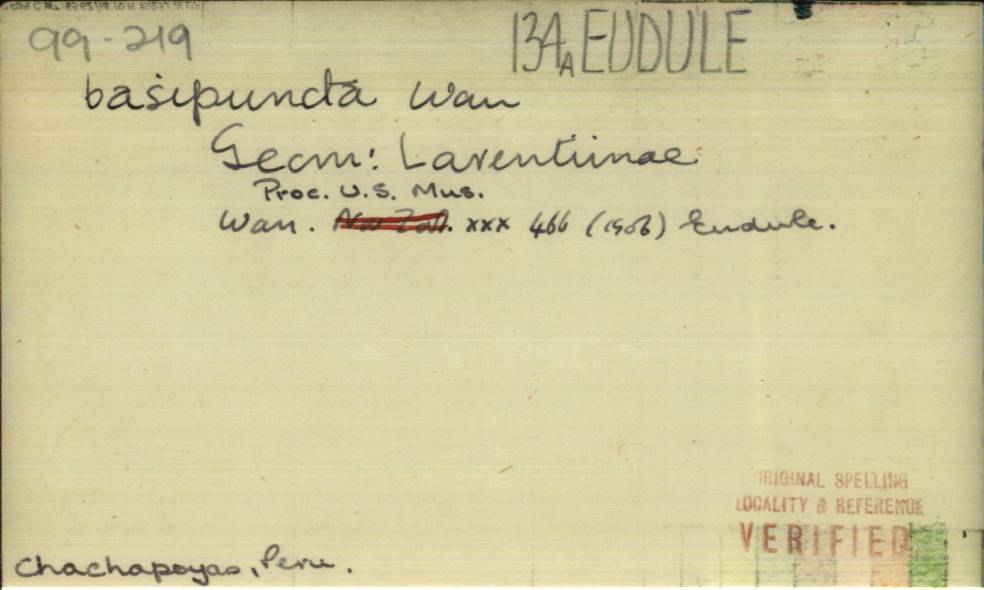 99-219
13A A EUDULE
basipuncta Warr
Geom: Larentiinae
Proc. U.S. Mus.
Warr. xxx 466 (1906) Eudule.
ORIGINAL SPELLING
LOCALITY & REFERENCE
VERIFIED
Chachapoyas, Peru.